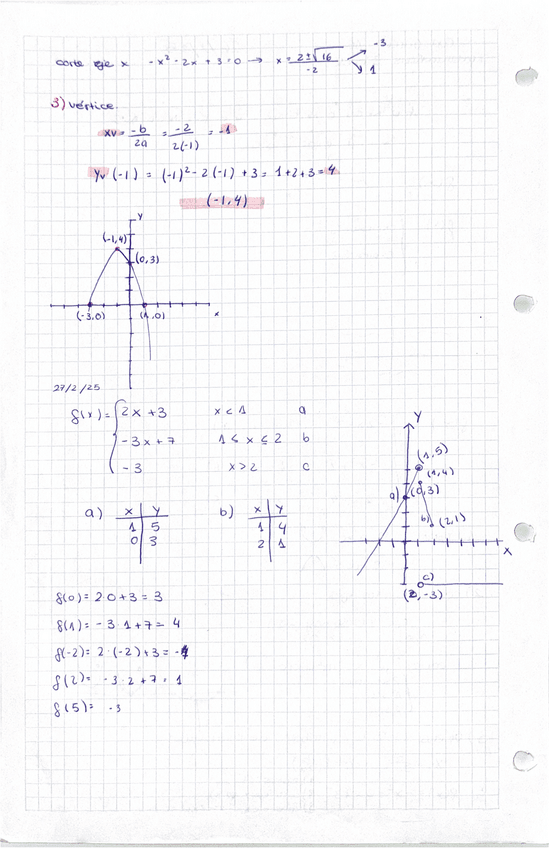 corte eje x -x² - 2x + 3 = 0 → x = 2±√16 / -2 -3
1
3) Vértice.
xv = -b/2a = -2/2(-1) = -1
Yv (-1) = (-1)² - 2(-1) + 3 = 1+2+3 = 4
(-1,4)
y
(-1,4)
(0,3)
(-3,0) (1,0) x
27/2/25
f(x) = { 2x + 3 x < 1 a
-3x + 7 1 ≤ x ≤ 2 b
-3 x > 2 c
Y
(1,5)
(1,4)
a) (0,3)
b) (2,1)
X
c)
(2, -3)
a) x y b) x y
1 5 1 4
0 3 2 1
f(0) = 2·0 + 3 = 3
f(1) = -3·1 + 7 = 4
f(-2) = 2·(-2) + 3 = -1
f(2) = -3·2 + 7 = 1
f(5) = -3